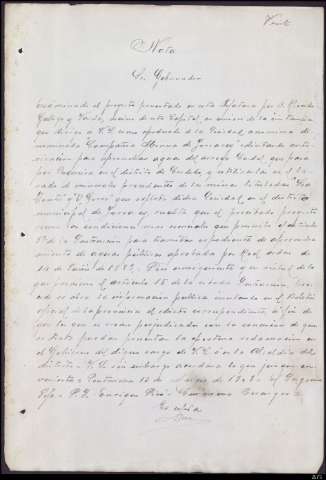 Veinte
Nota
Sr. Gobernador
Examinado el proyecto presentado en esta Jefatura por D. Ricardo
vecino de esta Capital, en unión de la instancia
que dirige a V.S. como apoderado de la Sociedad anónima de-
nominada Compañía Minera de solicitando autori-
zación para aprovechar aguas del arroyo que pasa
por en el distrito de y utilizarlas en el la-
vado de minerales procedentes de la mina titulada
que explota dicha Sociedad, en el distrito
municipal de resulta que el presentado proyecto
reune las condiciones mas esenciales que previene el artículo
de la Instrucción para tramitar expedientes de aprovecha-
miento de aguas públicas aprobada por Real orden de
14 de Junio de 1883. Por consiguiente que en virtud de lo
que previene el artículo 15 de la citada Instrucción, proce-
de se abra la información pública insertando en el Boletin
oficial de la provincia el edicto correspondiente, á fin de
que los que se crean perjudicados con la concesión de que
se trata puedan presentar la oportuna reclamación en
el Gobierno del digno cargo de V.S. ó en la Alcaldía del
distrito. V.S. sin embargo acordará lo que juzgue con-
veniente. Pontevedra 12 de de El Ingeniero
Jefe. P. I. Enrique
Es copia